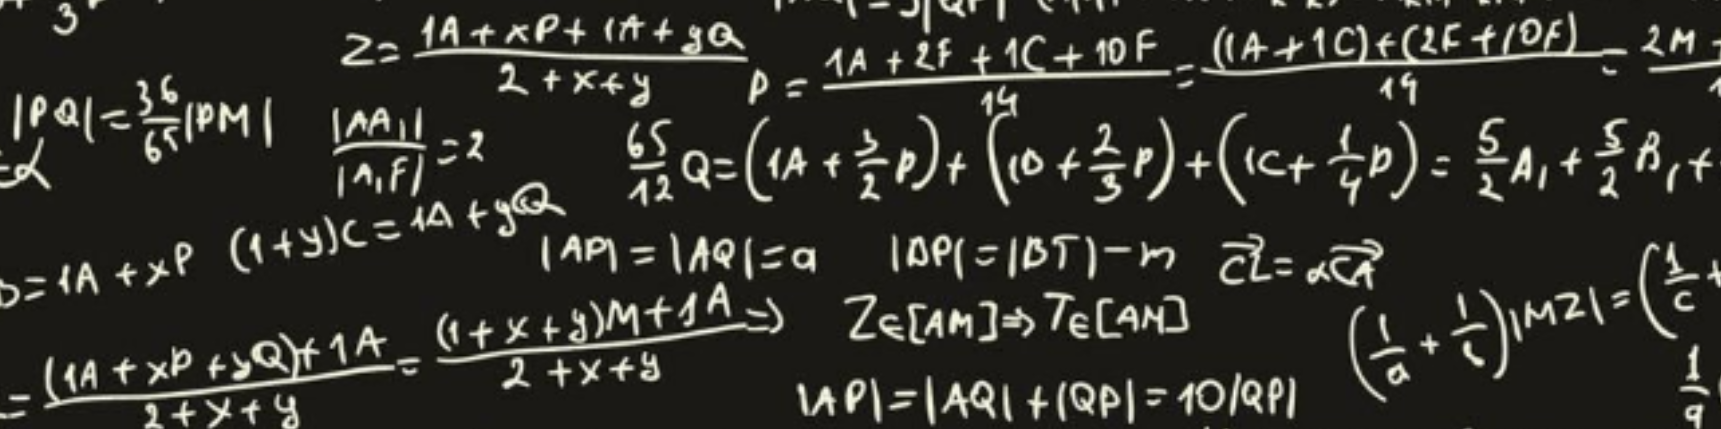 3
Z = (1A + xP + 1A + yQ) / (2 + x + y)
P = (1A + 2F + 1C + 10F) / 14 = ((1A + 1C) + (2F + 10F)) / 14 = 2M
|PQ| = 36/65 |PM|
|AA₁| / |A₁F| = 2
65/12 Q = (1A + 3/2 P) + (1D + 2/3 P) + (1C + 1/4 P) = 5/2 A₁ + 5/2 B₁ +
= 1A + xP
(1+y)C = 1A + yQ
|AP| = |AQ| = a
|BT| - m
CL⃗ = αCA⃗
= ((1A + xP + yQ) + 1A) / (2 + x + y) = ((1 + x + y)M + 1A) / (2 + x + y) ⇒
Z∈[AM] ⇒ T∈[AM]
|MZ| = (1/c +
|AP| = |AQ| + |QP| = 10|QP|